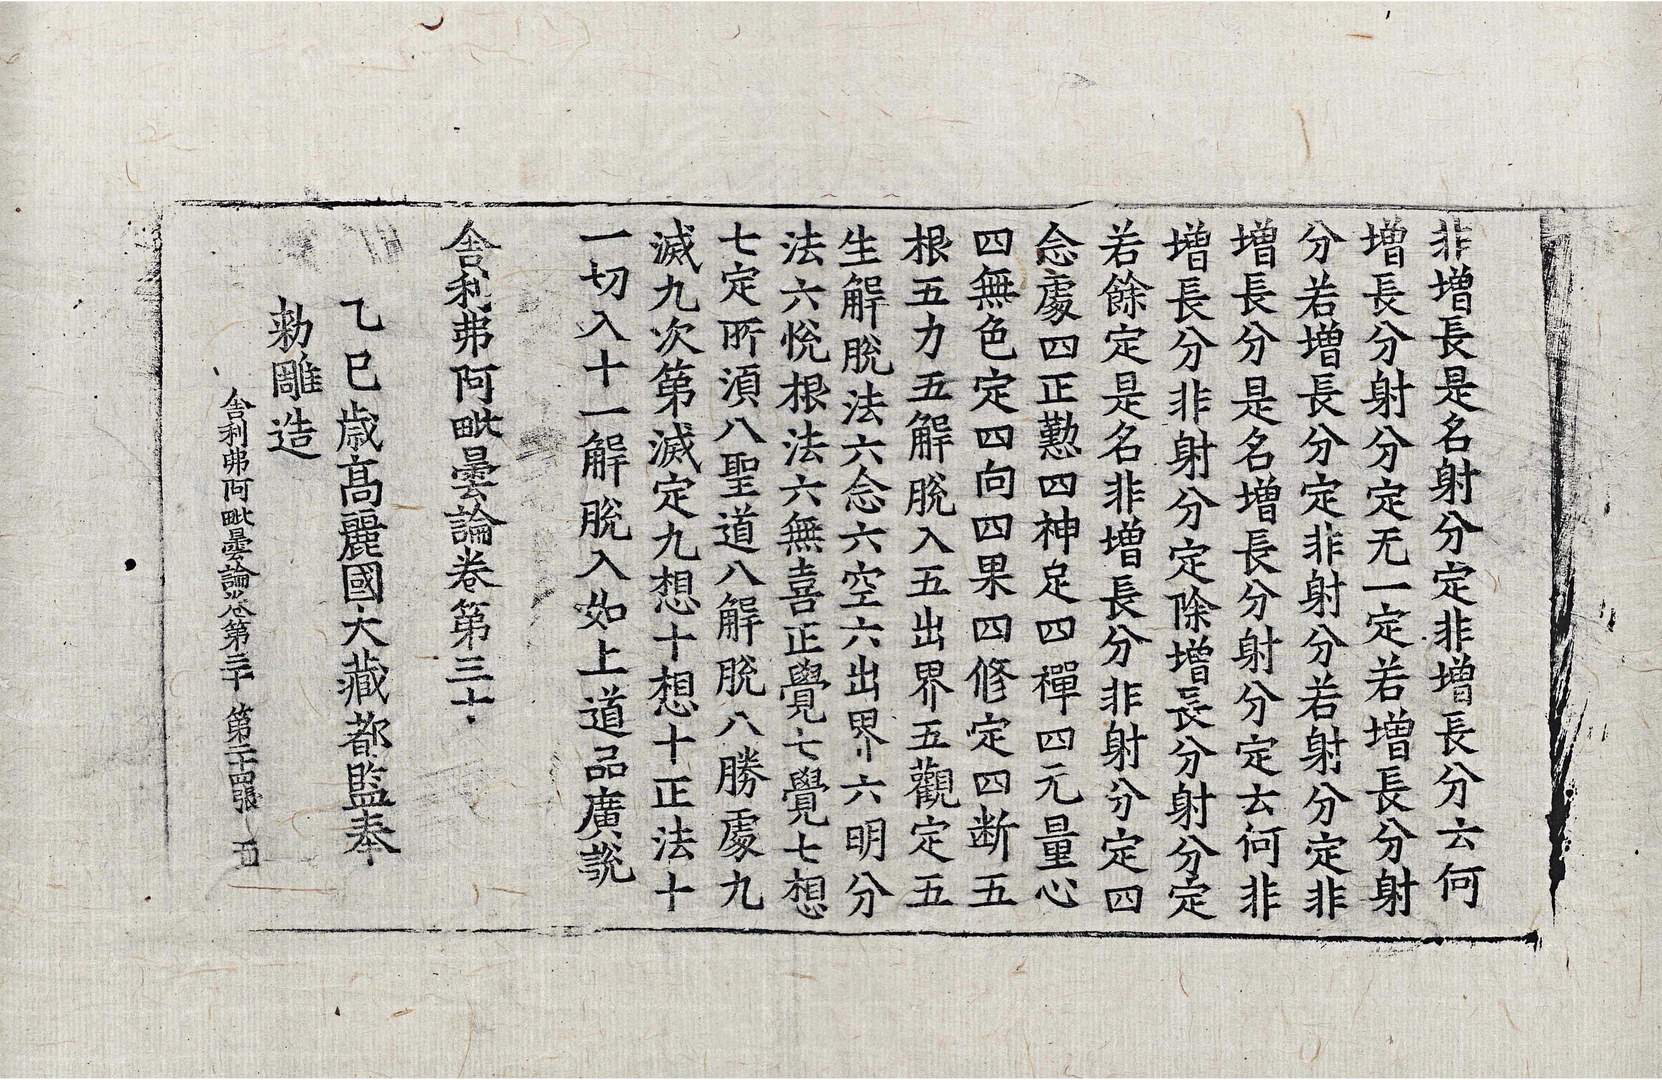 非增長是名射分定非增長分云何
增長分射分定无一定若增長分射
分若增長分定非射分若射分定非
增長分是名增長分射分定云何非
增長分非射分定除增長分射分定
若餘定是名非增長分非射分定四
念處四正懃四神足四禪四无量心
四無色定四向四果四修定四断五
根五力五解脫入五出界五觀定五
生解脫法六念六空六出界六明分
法六悅根法六無喜正覺七覺七想
七定所湏八聖道八解脫八勝處九
滅九次第滅定九想十想十正法十
一切入十一解脫入如上道品廣說
舍利弗阿毗曇論卷第三十
乙巳歲高麗國大藏都監奉
勅雕造
舍利弗阿毗曇論卷第三十 第二十四張 五